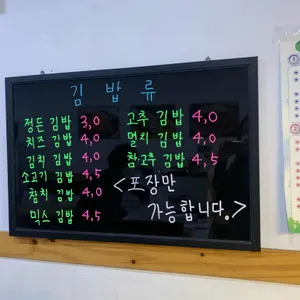 김 밥 류
정든 김밥 3,0
치즈 김밥 4,0
김치 김밥 4,0
소고기 김밥 4,5
참치 김밥 4,0
믹스 김밥 4,5
고추 김밥 4,0
멸치 김밥 4,0
참고추 김밥 4,5
<포장만
가능합니다.>